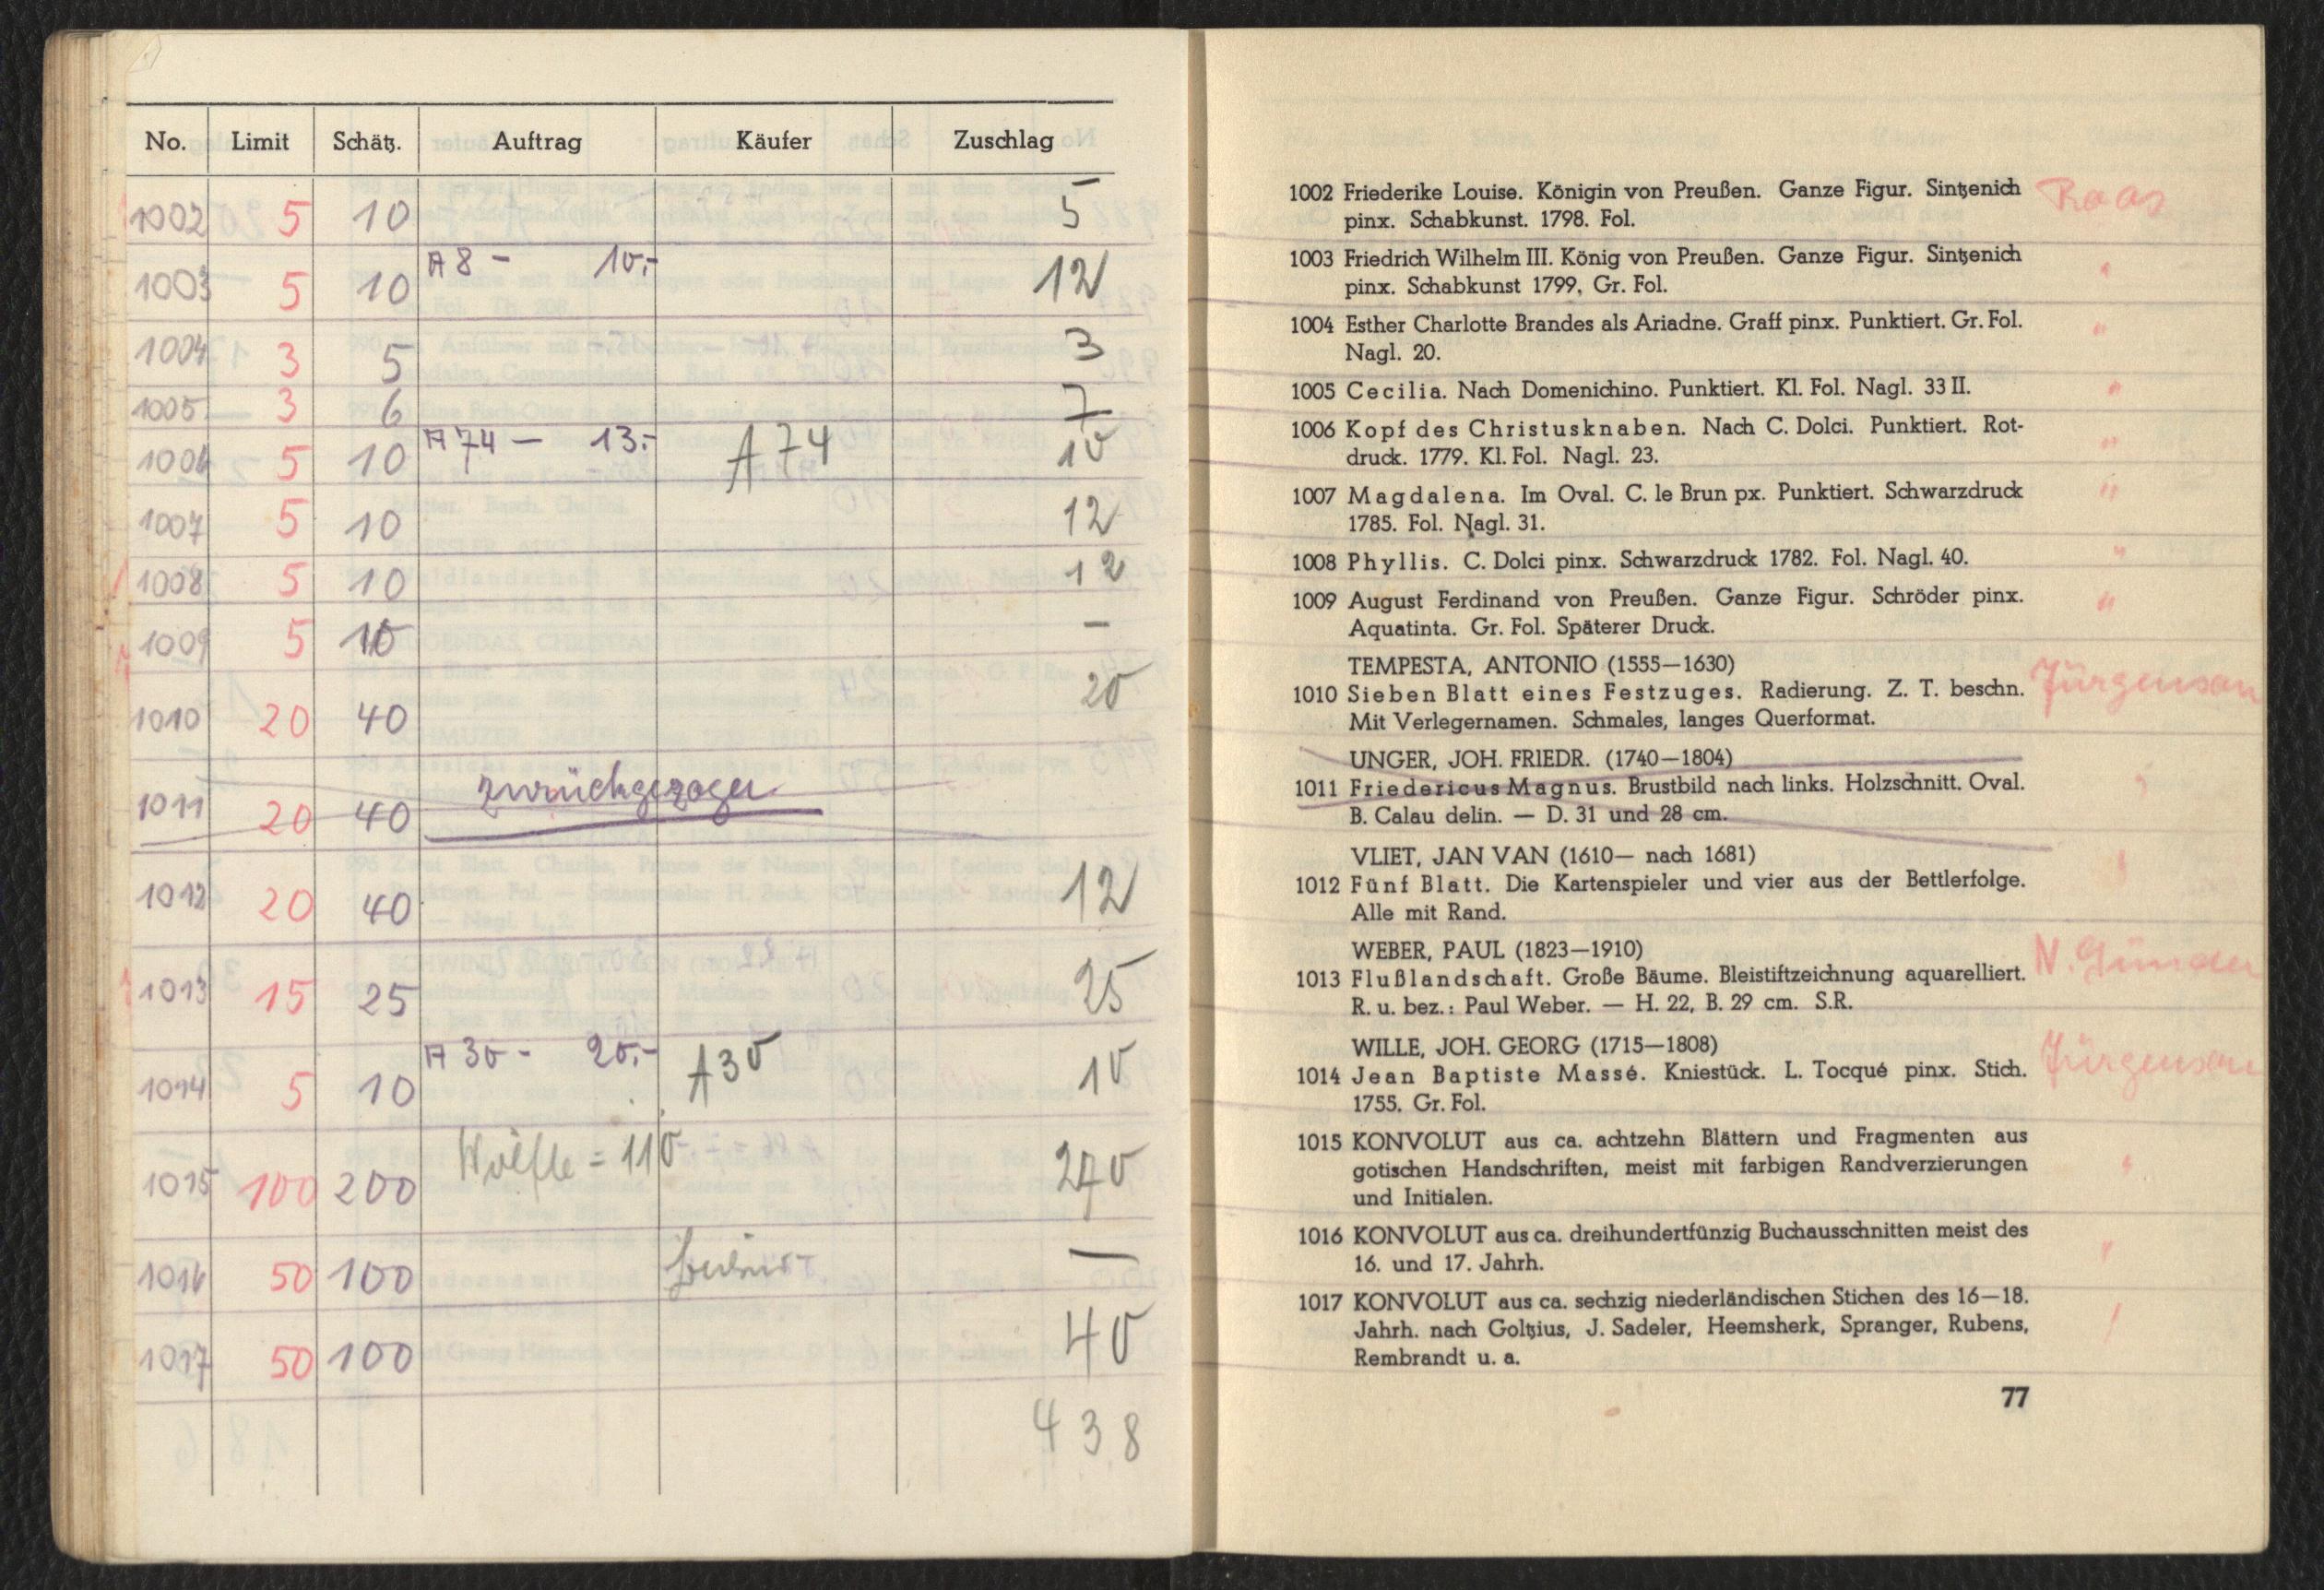 No. Limit Schätz. Auftrag Käufer Zuschlag
1002 5 10 5
1003 5 10 A 8 - 10.- 12
1004 3 5 3
1005 3 6 7
1006 5 10 A 74 - 13.- A 74 10
1007 5 10 12
1008 5 10 12
1009 5 10 —
1010 20 40 20
1011 20 40 zurückgezogen
1012 20 40 12
1013 15 25 25
1014 5 10 A 30 - 20.- A 30 10
1015 100 200 Wölfle = 110 270
1016 50 100 —
1017 50 100 40
438
1002 Friederike Louise. Königin von Preußen. Ganze Figur. Sintzenich Roas
pinx. Schabkunst. 1798. Fol.
1003 Friedrich Wilhelm III. König von Preußen. Ganze Figur. Sintzenich "
pinx. Schabkunst 1799. Gr. Fol.
1004 Esther Charlotte Brandes als Ariadne. Graff pinx. Punktiert. Gr. Fol. "
Nagl. 20.
1005 Cecilia. Nach Domenichino. Punktiert. Kl. Fol. Nagl. 33 II. "
1006 Kopf des Christusknaben. Nach C. Dolci. Punktiert. Rot- "
druck. 1779. Kl. Fol. Nagl. 23.
1007 Magdalena. Im Oval. C. le Brun px. Punktiert. Schwarzdruck "
1785. Fol. Nagl. 31.
1008 Phyllis. C. Dolci pinx. Schwarzdruck 1782. Fol. Nagl. 40. "
1009 August Ferdinand von Preußen. Ganze Figur. Schröder pinx. "
Aquatinta. Gr. Fol. Späterer Druck.
TEMPESTA, ANTONIO (1555—1630)
1010 Sieben Blatt eines Festzuges. Radierung. Z. T. beschn. Jürgensen
Mit Verlegernamen. Schmales, langes Querformat.
UNGER, JOH. FRIEDR. (1740—1804)
1011 Friedericus Magnus. Brustbild nach links. Holzschnitt. Oval. "
B. Calau delin. — D. 31 und 28 cm.
VLIET, JAN VAN (1610— nach 1681)
1012 Fünf Blatt. Die Kartenspieler und vier aus der Bettlerfolge. "
Alle mit Rand.
WEBER, PAUL (1823—1910)
1013 Flußlandschaft. Große Bäume. Bleistiftzeichnung aquarelliert.
R. u. bez.: Paul Weber. — H. 22, B. 29 cm. S.R.
WILLE, JOH. GEORG (1715—1808)
1014 Jean Baptiste Massé. Kniestück. L. Tocqué pinx. Stich. Jürgensen
1755. Gr. Fol.
1015 KONVOLUT aus ca. achtzehn Blättern und Fragmenten aus
gotischen Handschriften, meist mit farbigen Randverzierungen "
und Initialen.
1016 KONVOLUT aus ca. dreihundertfünzig Buchausschnitten meist des "
16. und 17. Jahrh.
1017 KONVOLUT aus ca. sechzig niederländischen Stichen des 16—18.
Jahrh. nach Goltzius, J. Sadeler, Heemsherk, Spranger, Rubens,
Rembrandt u. a.
77